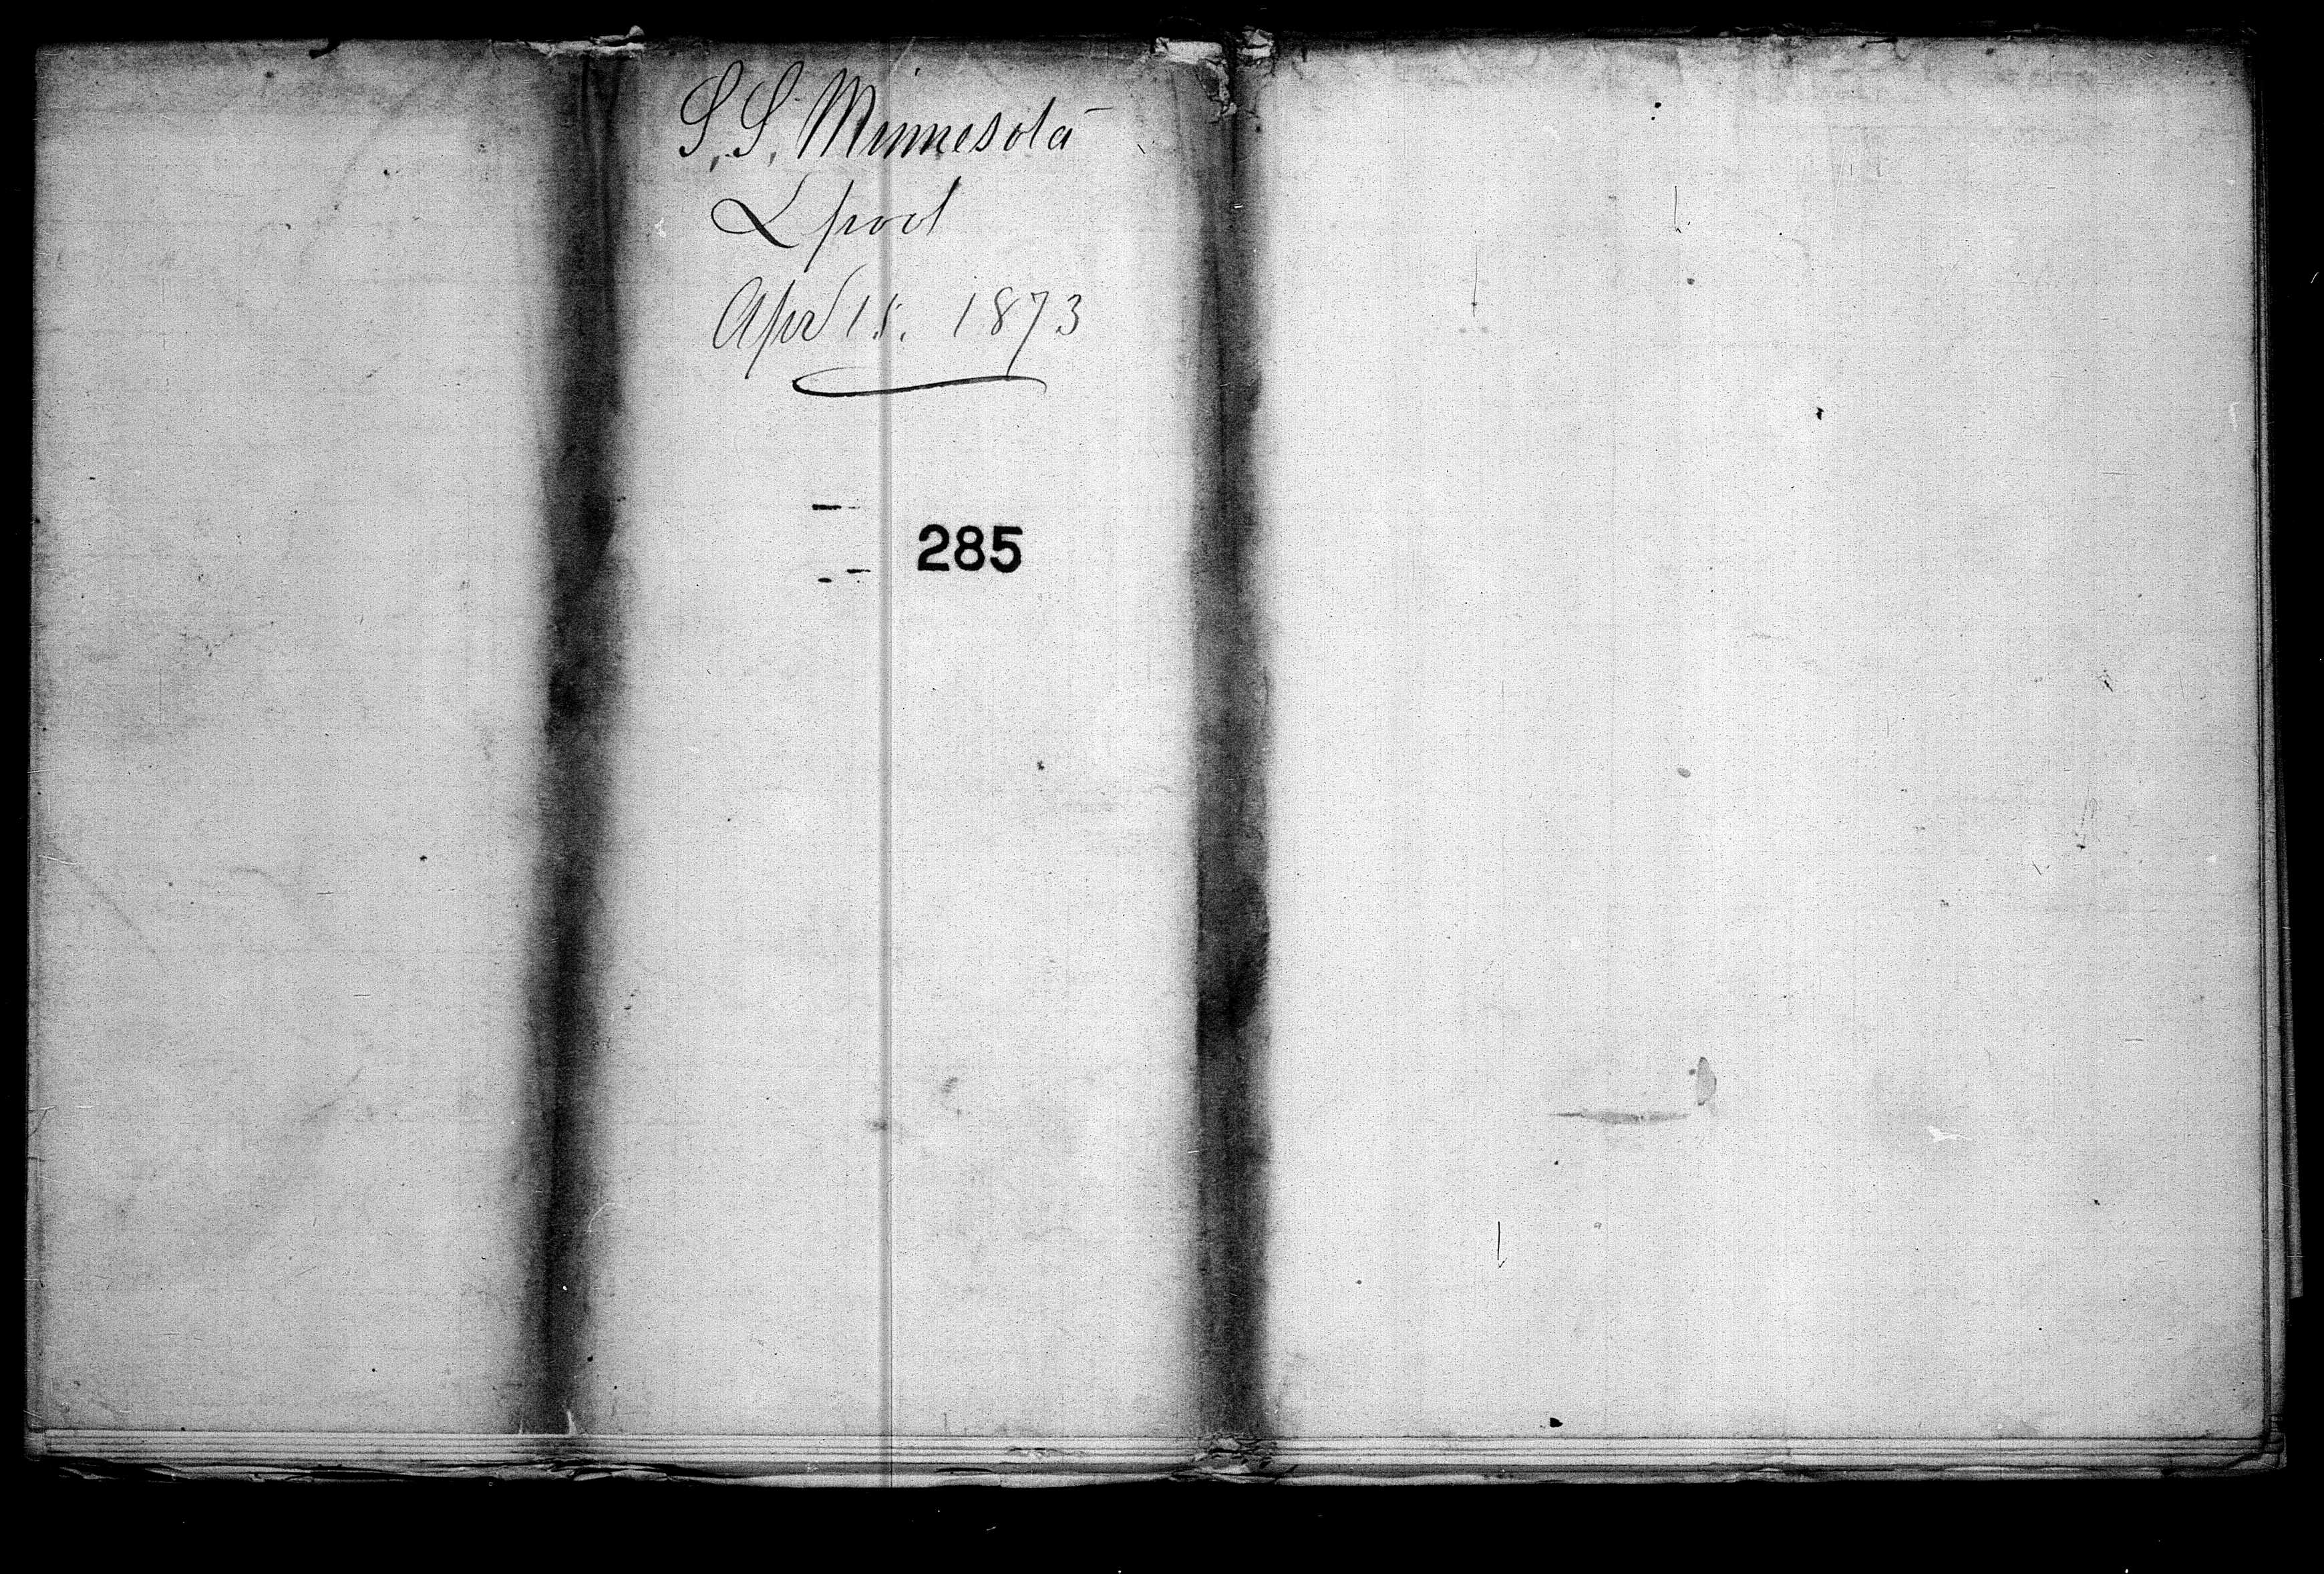 S. S. Minnesota
Lpool
Apr 15. 1873
285